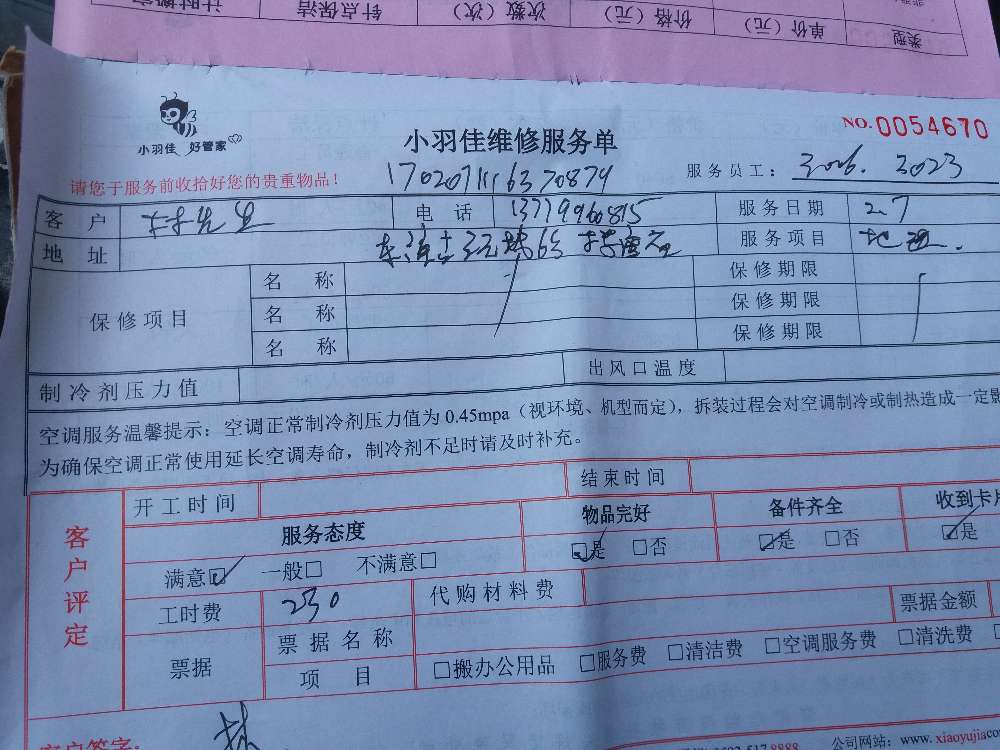 类型 单价（元） 价格（元） 次数（次） 针点保洁
小羽佳 好管家
小羽佳维修服务单
NO.0054670
请您于服务前收拾好您的贵重物品！
17020711116370879
服务员工： 3023
客户 林先生 电话 13779960815 服务日期 2.7
地址 服务项目
保修项目 名称 保修期限
名称 保修期限
名称 保修期限
制冷剂压力值 出风口温度
空调服务温馨提示：空调正常制冷剂压力值为0.45mpa（视环境、机型而定），拆装过程会对空调制冷或制热造成一定影
为确保空调正常使用延长空调寿命，制冷剂不足时请及时补充。
客户评定
开工时间 结束时间
服务态度 物品完好 备件齐全 收到卡片
满意☑ 一般□ 不满意□ ☑是 □否 ☑是 □否 ☑是
工时费 230 代购材料费 票据金额
票据 票据名称
项目 □搬办公用品 □服务费 □清洁费 □空调服务费 □清洗费
客户签字： 林
公司网站：www.xiaoyujiaco